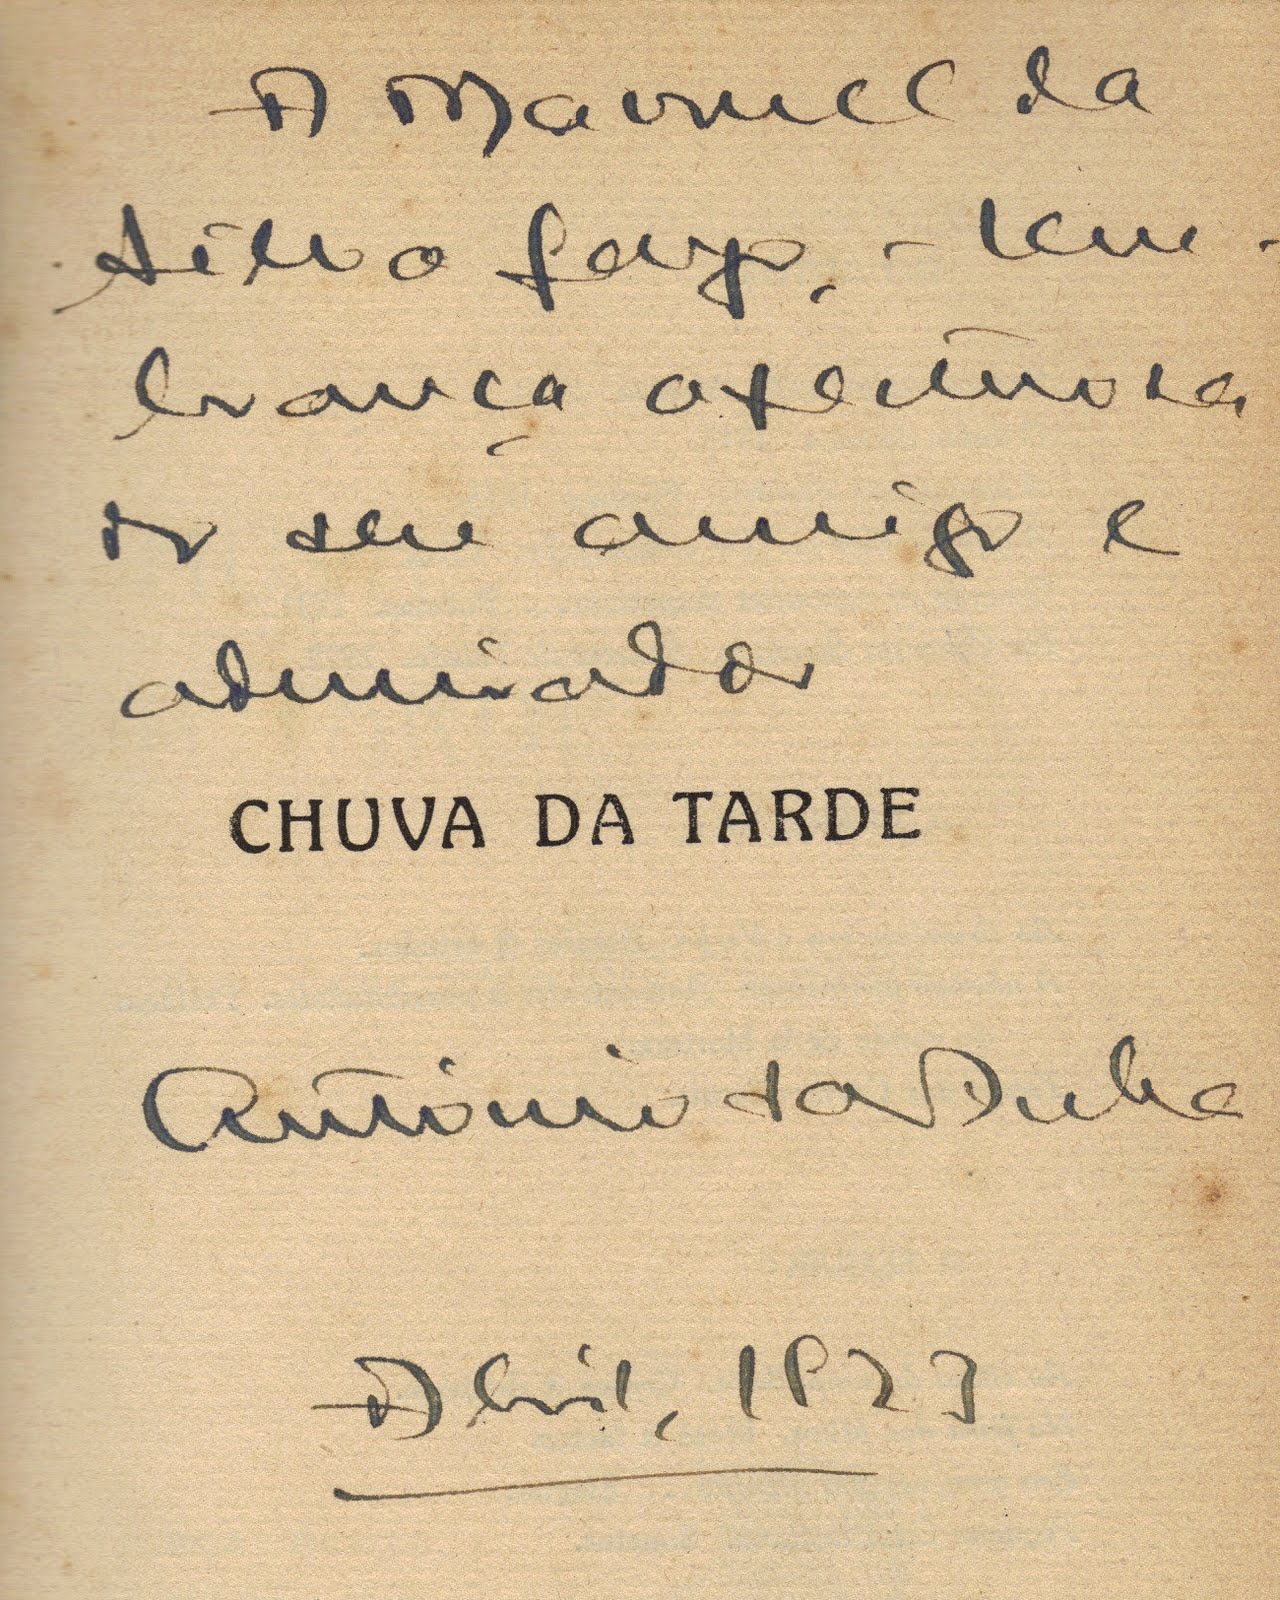 A Manuel da
Silva Gayo, - lem-
brança afectuosa
do seu amigo e
admirador
CHUVA DA TARDE
António
Abril, 1923